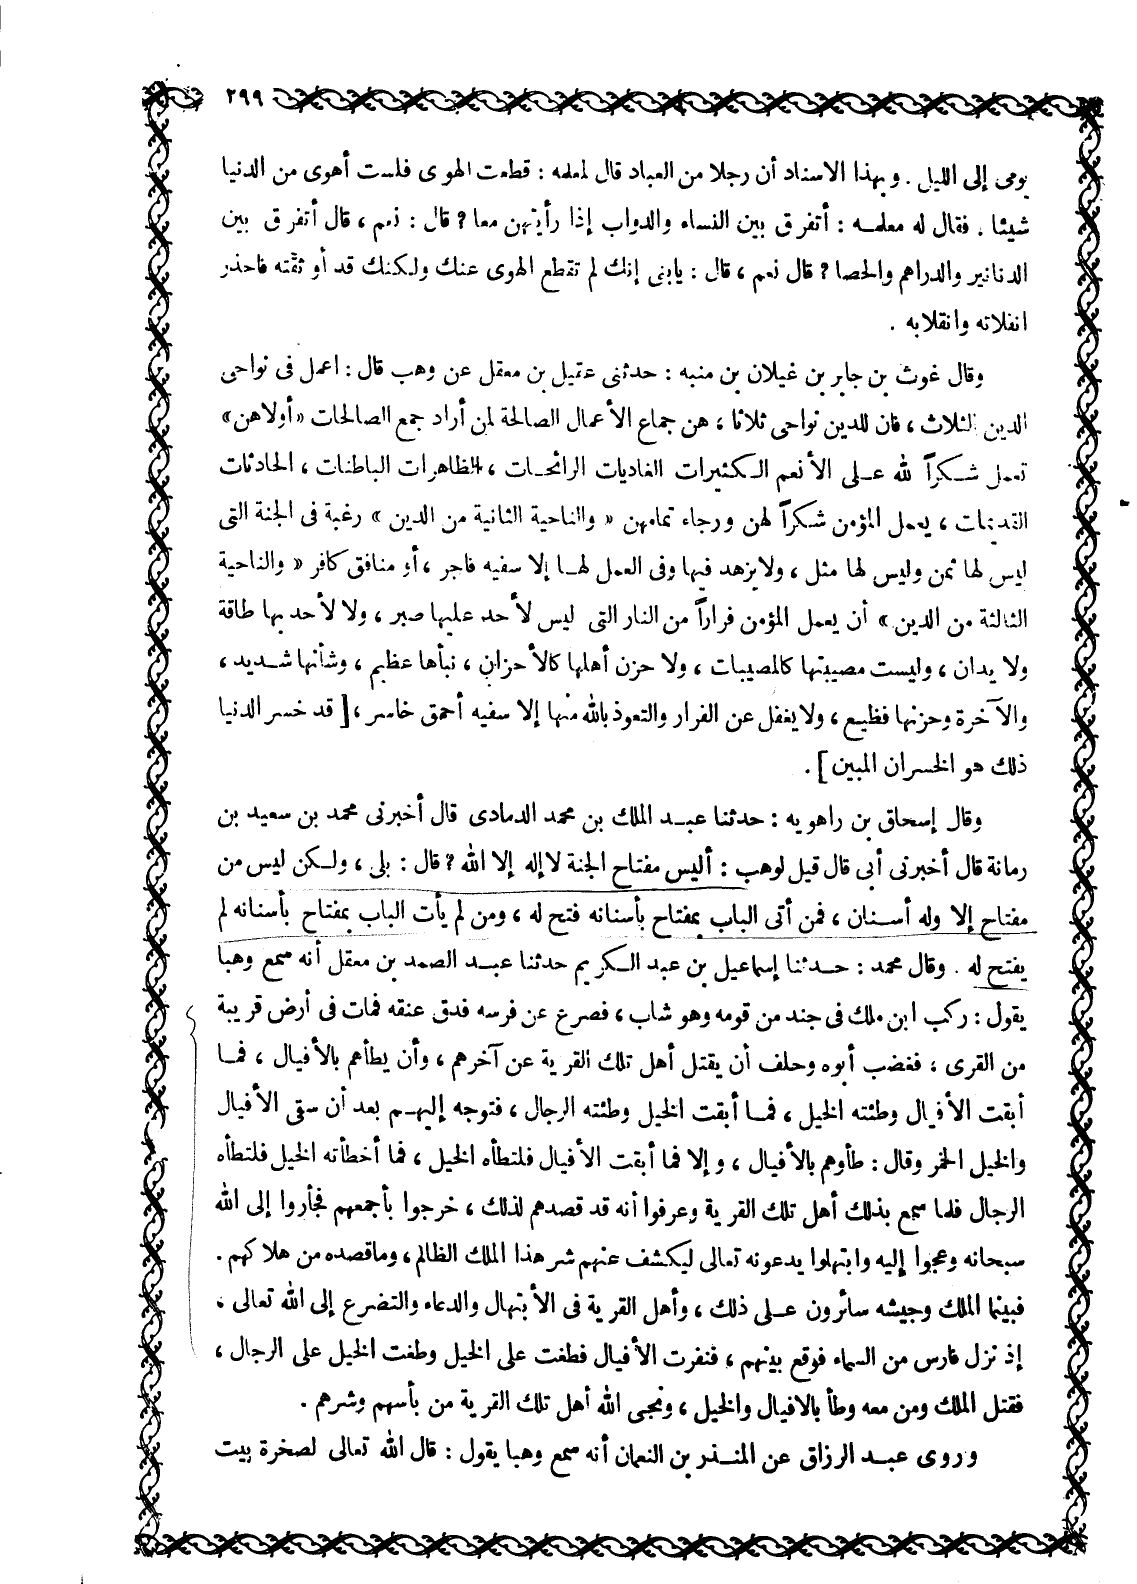 ٢٩٩
يومى إلى الليل . وبهذا الاسناد أن رجلا من العباد قال لمعلمه : قطعت الهوى فلست أهوى من الدنيا
شيئا . فقال له معلمه : أتفرق بين النساء والدواب إذا رأيتهن معا ? قال : نعم ، قال أتفرق بين
الدنانير والدراهم والحصا ? قال نعم ، قال : يابنى إنك لم تقطع الهوى عنك ولكنك قد أوثقته فاحذر
انفلاته وانقلابه .
وقال غوث بن جابر بن غيلان بن منبه : حدثنى عقيل بن معقل عن وهب قال : اعمل فى نواحى
الدين الثلاث ، فان للدين نواحى ثلاثا ، هن جماع الأعمال الصالحة لمن أراد جمع الصالحات «أولاهن»
تعمل شكراً لله على الأنعم الكثيرات الغاديات الرائحات ، الظاهرات الباطنات ، الحادثات
القديمات ، يعمل المؤمن شكراً لهن ورجاء تمامهن « والناحية الثانية من الدين » رغبة فى الجنة التى
ليس لها ثمن وليس لها مثل ، ولايزهد فيها وفى العمل لها إلا سفيه فاجر ، أو منافق كافر « والناحية
الثالثة من الدين » أن يعمل المؤمن فراراً من النار التى ليس لأحد عليها صبر ، ولا لأحد بها طاقة
ولا يدان ، وليست مصيبتها كالمصيبات ، ولا حزن أهلها كالأحزان ، نبأها عظيم ، وشأنها شديد ،
والآخرة وحزنها فظيع ، ولايغفل عن الفرار والتعوذ بالله منها إلا سفيه أحمق خاسر ، [ قد خسر الدنيا
ذلك هو الخسران المبين ] .
وقال إسحاق بن راهويه : حدثنا عبد الملك بن محمد الدمادى قال أخبرنى محمد بن سعيد بن
رمانة قال أخبرنى أبى قال قيل لوهب : أليس مفتاح الجنة لاإله إلا الله ? قال : بلى ، ولكن ليس من
مفتاح إلا وله أسنان ، فمن أتى الباب بمفتاح بأسنانه فتح له ، ومن لم يأت الباب بمفتاح بأسنانه لم
يفتح له . وقال محمد : حدثنا إسماعيل بن عبد الكريم حدثنا عبد الصمد بن معقل أنه سمع وهبا
يقول : ركب ابن ملك فى جند من قومه وهو شاب ، فصرع عن فرسه فدق عنقه فمات فى أرض قريبة
من القرى ، فغضب أبوه وحلف أن يقتل أهل تلك القرية عن آخرهم ، وأن يطأهم بالأفيال ، فما
أبقت الأفيال وطئته الخيل ، فما أبقت الخيل وطئته الرجال ، فتوجه إليهم بعد أن سقى الأفيال
والخيل الخمر وقال : طأوهم بالأفيال ، وإلا فما أبقت الأفيال فلتطأه الخيل ، فما أخطأته الخيل فلتطأه
الرجال فلما سمع بذلك أهل تلك القرية وعرفوا أنه قد قصدهم لذلك ، خرجوا بأجمعهم فجأروا إلى الله
سبحانه وعجوا إليه وابتهلوا يدعونه تعالى ليكشف عنهم شر هذا الملك الظالم ، وماقصده من هلاكهم .
فبينما الملك وجيشه سائرون على ذلك ، وأهل القرية فى الأبتهال والدعاء والتضرع إلى الله تعالى ،
إذ نزل فارس من السماء فوقع بينهم ، فنفرت الأفيال فطغت على الخيل وطغت الخيل على الرجال ،
فقتل الملك ومن معه وطأ بالافيال والخيل ، ونجى الله أهل تلك القرية من بأسهم وشرهم .
وروى عبد الرزاق عن المنذر بن النعمان أنه سمع وهبا يقول : قال الله تعالى لصخرة بيت